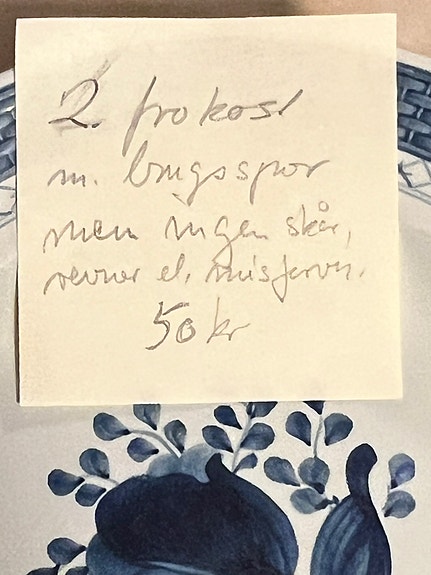 2. frokost
m. brugsspor
men ingen skår,
revner el. misfarvn.
50 kr